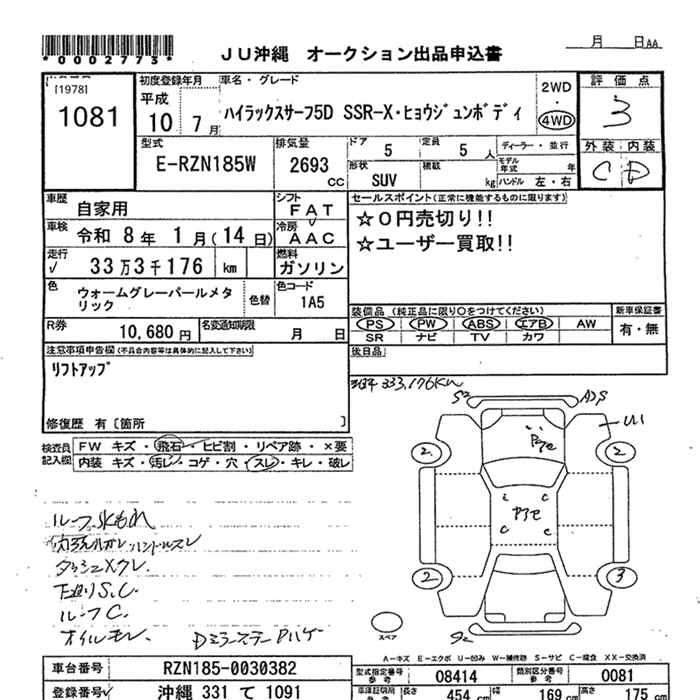 *0002773*
JU沖縄 オークション出品申込書
月 日AA
[1978]
1081
初度登録年月
平成
10 7月
車名・グレード
ハイラックスサーフ5D SSR-X・ヒョウジュンボディ
2WD
4WD
評価点
3
外装 内装
C D
型式
E-RZN185W
排気量
2693
CC
ドア
5
定員
5 人
ディーラー・並行
形状
SUV
積載
kg
モデル年式 年
ハンドル 左・右
車歴
自家用
シフト
FAT
車検
令和 8年 1月(14日)
冷房
AAC
走行
33万3千176 km
燃料
ガソリン
色
ウォームグレーパールメタリック
色替
色コード
1A5
R券
10,680 円
名変通知期限
月 日
セールスポイント(正常に機能するものに限ります)
☆0円売切り!!
☆ユーザー買取!!
装備品(純正品に限り○をつけてください)
PS PW ABS エアB AW
SR ナビ TV カワ
新車保証書
有・無
後日品
注意事項申告欄(不具合内容等は具体的に記入して下さい)
リフトアップ
修復歴 有〔箇所 〕
検査員記入欄
FW キズ・飛石・ヒビ割・リペア跡・×要
内装 キズ・汚レ・コゲ・穴・スレ・キレ・破レ
333,176Km
S2
2
2
2
3
ルーフ水もれ
ダッシュメクレ
ルーフC.
オイルモレ.
スペア
A-キズ E-エクボ U-凹み W-補修跡 S-サビ C-腐食 XX-交換済
車台番号
RZN185-0030382
型式指定番号
08414
類別区分番号
0081
登録番号
沖縄 331 て 1091
長さ
454 cm
幅
169 cm
高さ
175 cm